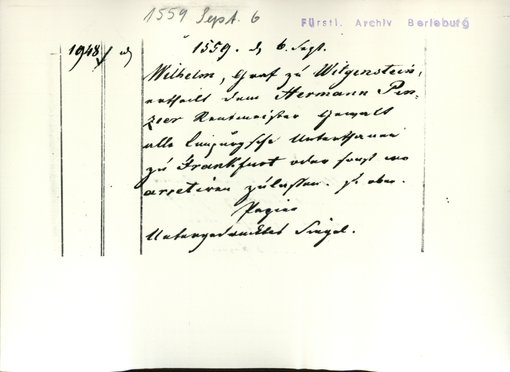 1559 Sept. 6
Fürstl. Archiv Berleburg
1948
1559. d 6. Sept.
Wilhelm, Graf zu Witgenstein,
ertheilt dem Hermann Pen-
zier Rentmeister Gewalt
alle Unterthanen
zu Frankfurt oder sonst wo
arretiren zu lassen.
Papier
Untergedrucktes Siegel.